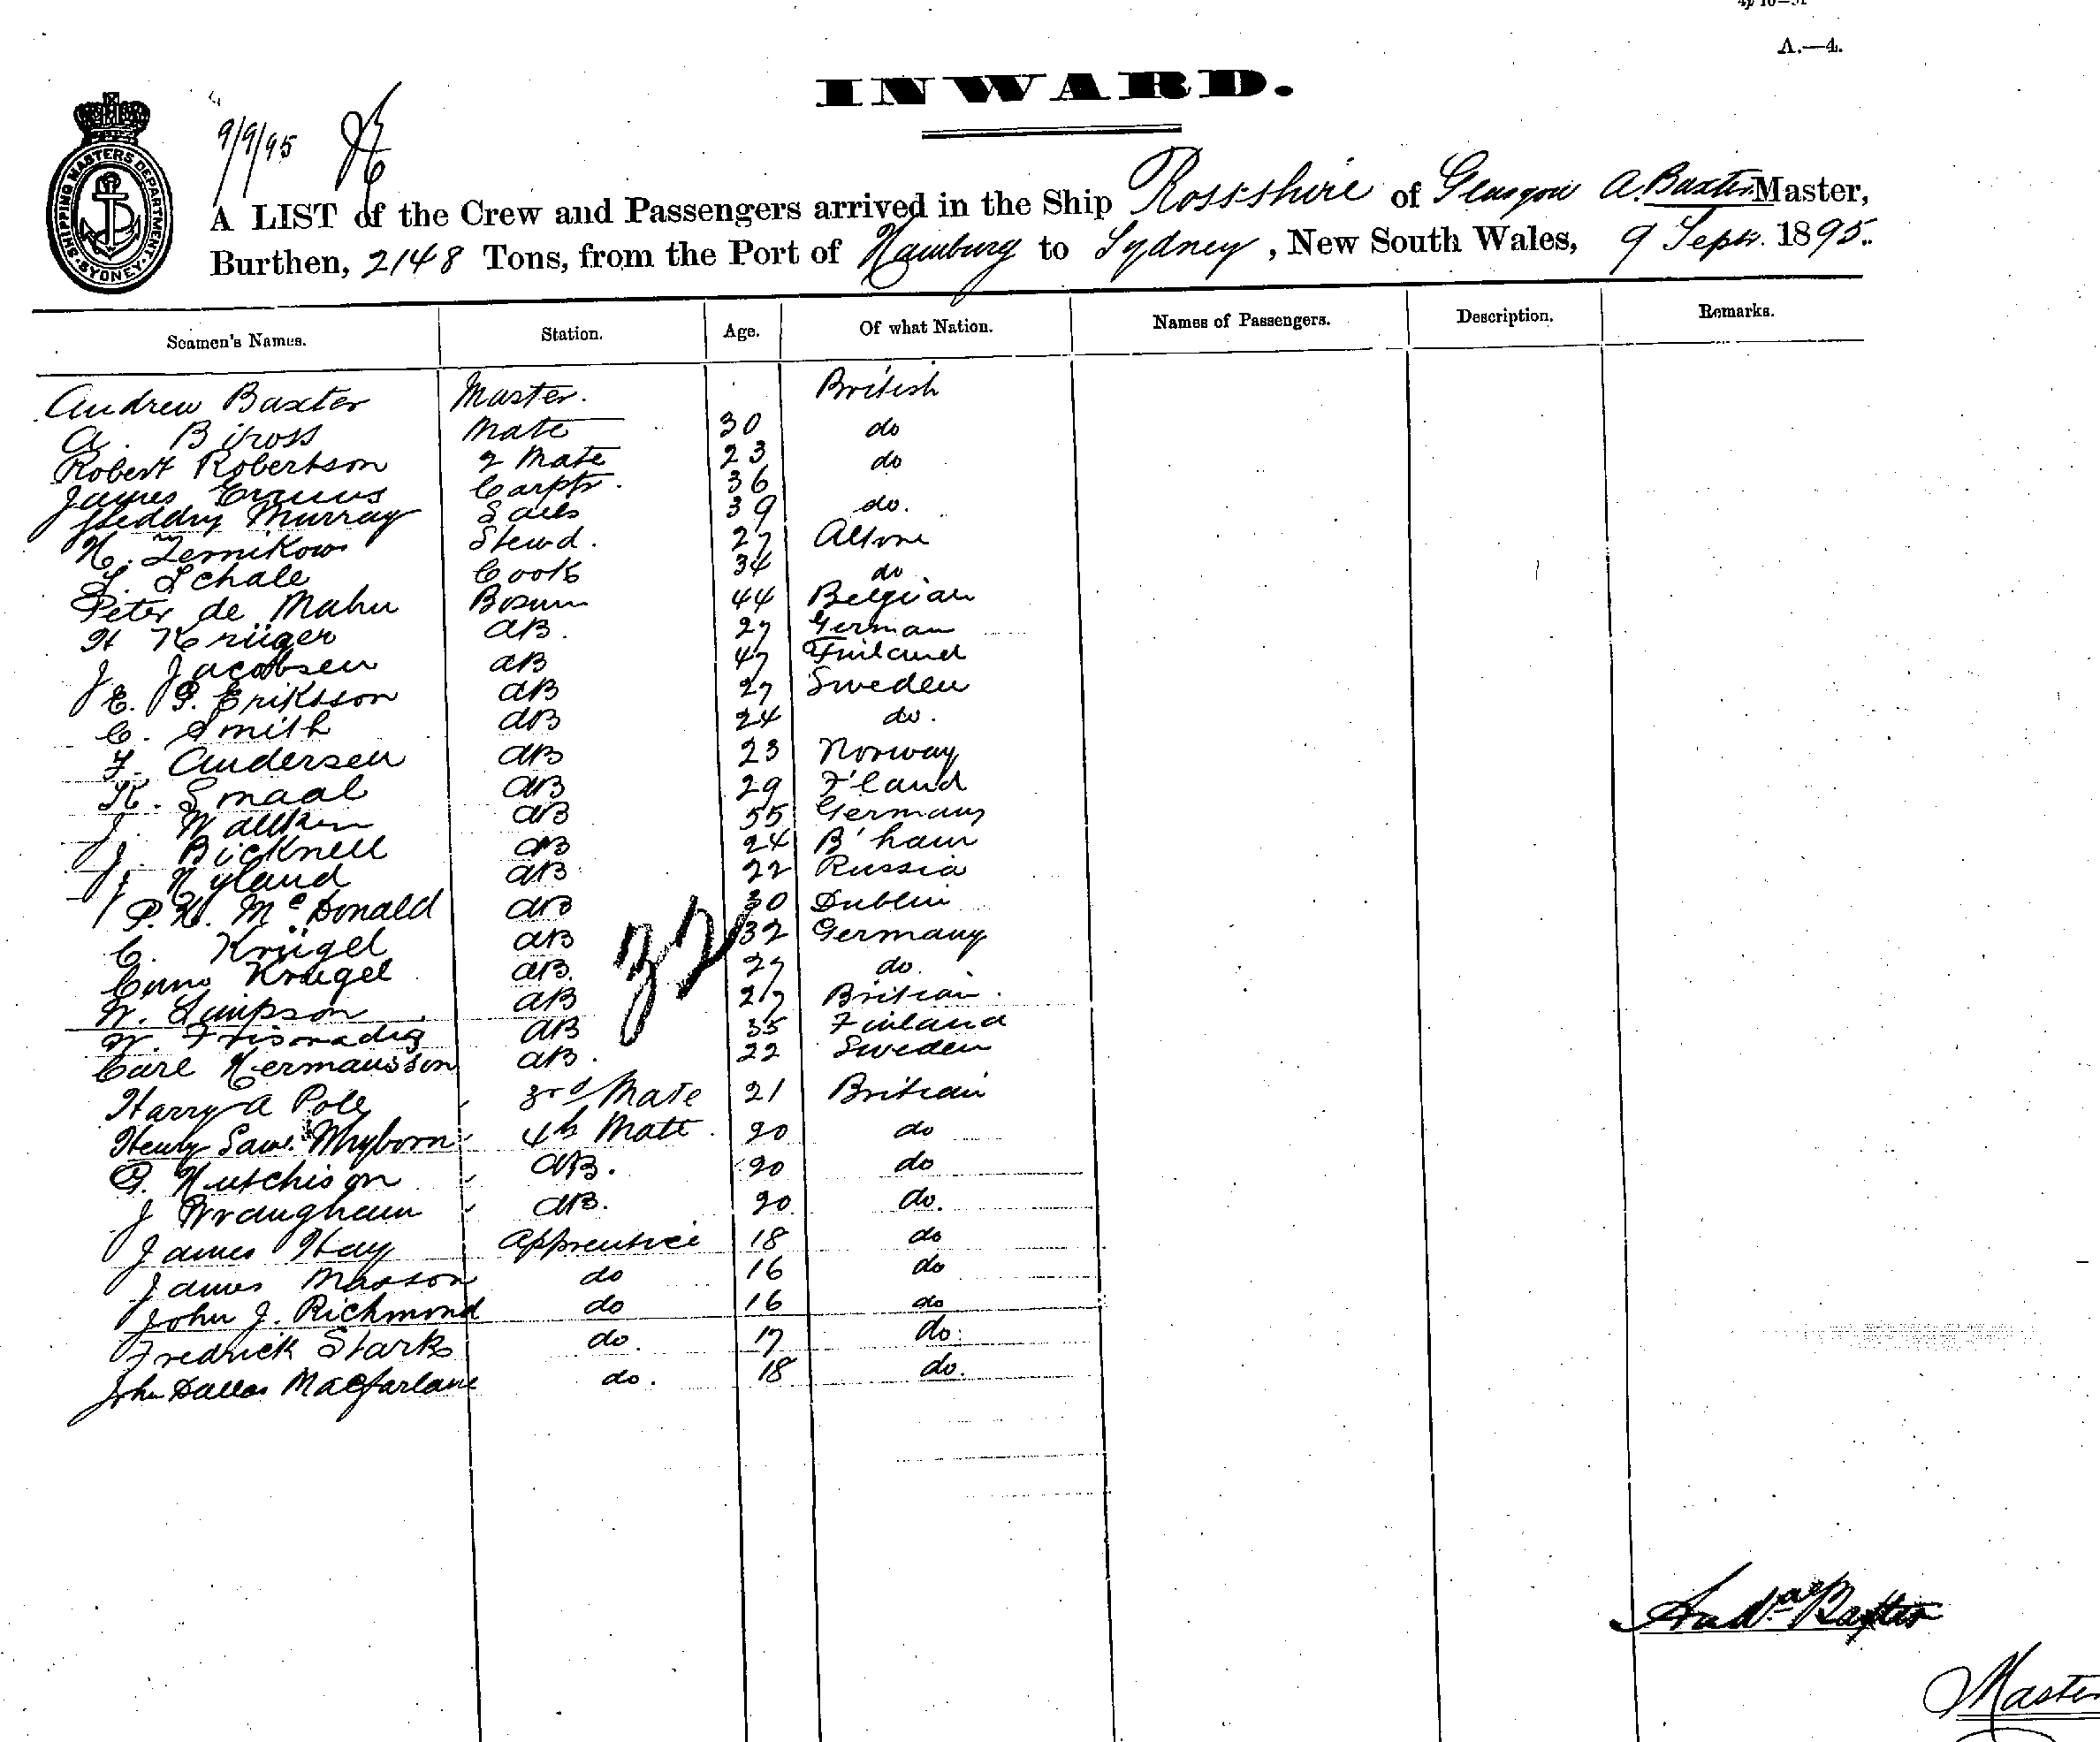 A.—4.
INWARD.
9/9/95
SHIPPING MASTERS DEPARTMENT SYDNEY
A LIST of the Crew and Passengers arrived in the Ship Ross-shire of Glasgow A. Baxter Master,
Burthen, 2148 Tons, from the Port of Hamburg to Sydney, New South Wales, 9 Sept. 1895.
Seamen's Names. Station. Age. Of what Nation. Names of Passengers. Description. Remarks.
Andrew Baxter Master. British
A. Mate 30 do
Robert Robertson 2 Mate 23 do
James Carptr. 36
Murray Sails 39 do.
H. Zernikow Stewd. 27
Schale Cook 34 do
Peter de Mahu Bosun 44 Belgian
H Krüger AB. 27 German
J. Jacobsen AB 47 Finland
E. P. Eriksson AB 27 Sweden
C. Smith AB 24 do.
F. Andersen AB 23 Norway
K. Smaal AB 29 F'land
J. AB 55 Germany
J. Bicknell AB 24 B'ham
J. Nyland AB 22 Russia
P. H. McDonald AB 30 Dublin
C. Krügel AB 32 Germany
Cuno Krugel AB. 27 do.
W. Simpson AB 27 Britian.
W. AB 35 Finland
Carl Hermansson AB. 22 Sweden
32
Harry A Pole 3rd Mate 21 Britian
Henry Saml. Whyborn 4th Mate. 20 do
P. Hutchison AB. 20 do
J Wraugham AB. 20 do.
James Hay Apprentice 18 do
James Masson do 16 do
John J. Richmond do 16 do
Fredrick Stark do. 17 do.
John Dallas Macfarlane do. 18 do.
Andw Baxter
Master